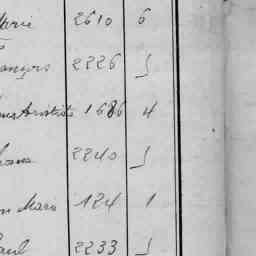 Marie 2610 6
2226 5
Aristide 1686 4
2240 5
Mars 124 1
Paul 2233 5